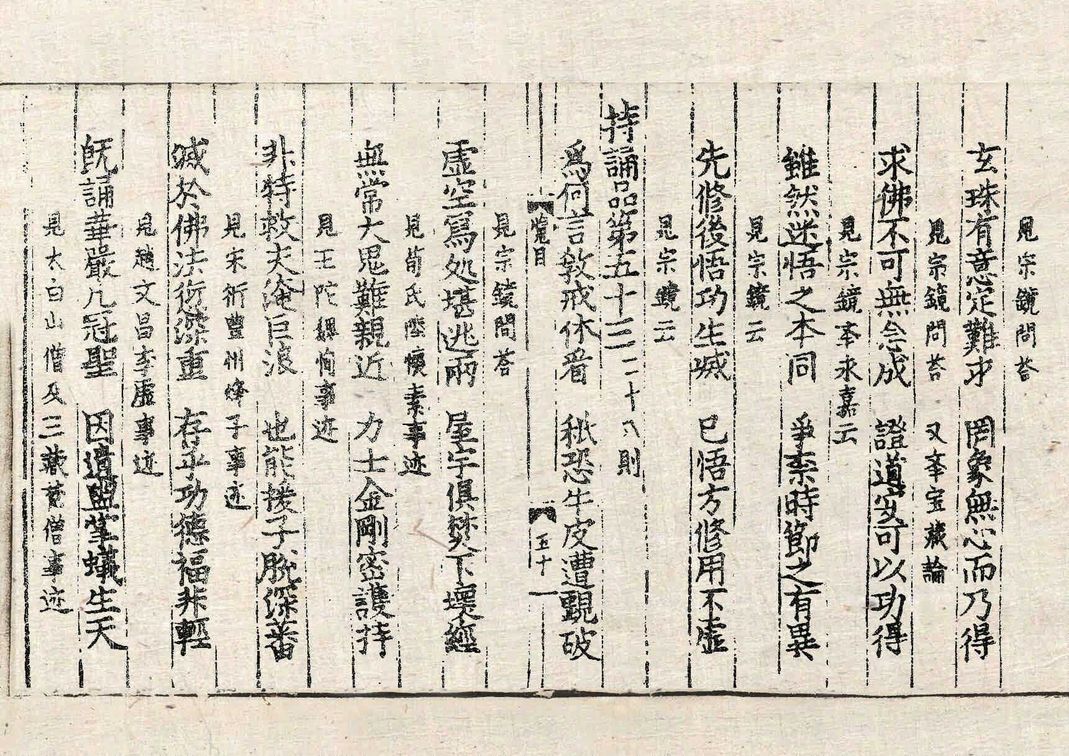 見宗鏡問荅
玄珠有意定難求 罔象無心而乃得
見宗鏡問荅 又夲宝藏論
求佛不可無念成 證道安可以功得
見宗鏡夲永嘉云
雖然迷悟之本同 爭柰時節之有異
見宗鏡云
先修後悟功生滅 已悟方修用不虛
見宗鏡云
持誦品第五十三 二十八則
為何言教戒休看 秖恐牛皮遭覷破
覽目 五十一
見宗鏡問荅
虛空寫処堪逃雨 屋宇俱焚下壞經
見荀氏 懷素事迹
無常大鬼難親近 力士金剛密護持
見王陀 事迹
非特救夫淹巨浪 也能接子脫深番
見宋衍豐州烽子事迹
滅於佛法愆深重 存乎功德福非輕
見趙文昌李虛事迹
旣誦華嚴凡冠聖 因遺盥掌蟻生天
見太白山僧及三藏梵僧事迹